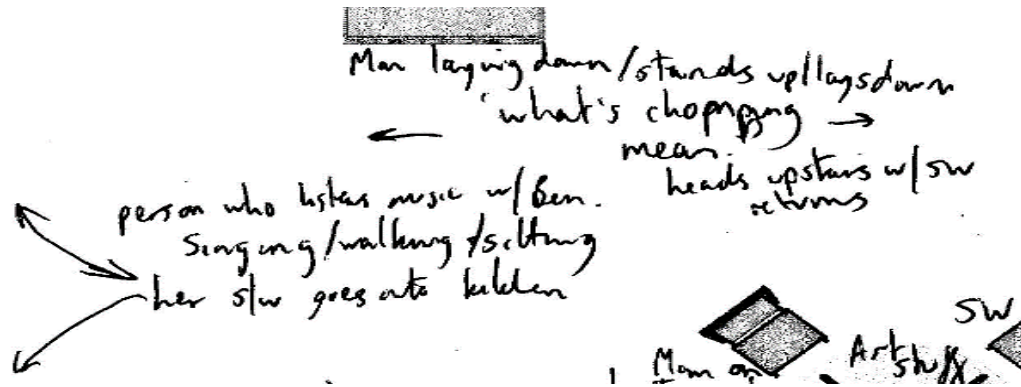 Man laying down/stands up/lays down
'what's chopping
mean.
heads upstairs w/ SW
returns
person who listens music w/ Ben.
Singing/walking/sitting
her s/w goes into kitchen
SW
Art
stuff
Man on